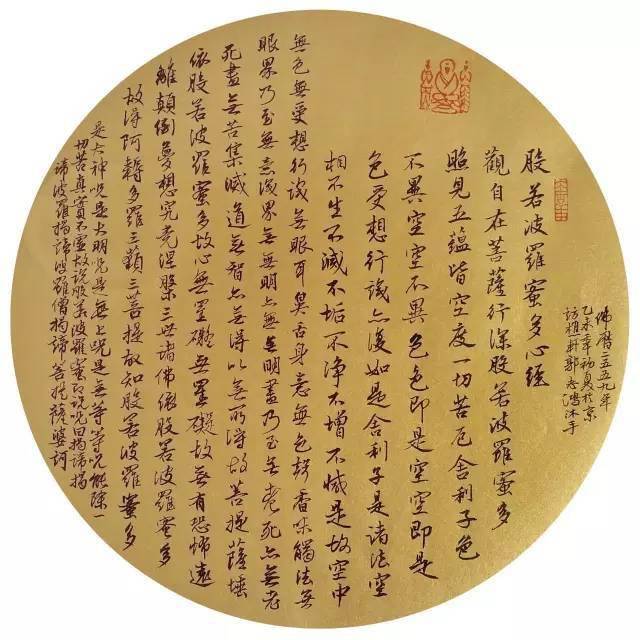 般若波羅蜜多心經
觀自在菩薩行深般若波羅蜜多
照見五蘊皆空度一切苦厄舍利子色
不異空空不異色色即是空空即是
色受想行識亦復如是舍利子是諸法空
相不生不滅不垢不淨不增不減是故空中
無色無受想行識無眼耳鼻舌身意無色聲香味觸法無
眼界乃至無意識界無無明亦無無明盡乃至無老死亦無老
死盡無苦集滅道無智亦無得以無所得故菩提薩埵
依般若波羅蜜多故心無罣礙無罣礙故無有恐怖遠
離顛倒夢想究竟涅槃三世諸佛依般若波羅蜜多
故得阿耨多羅三藐三菩提故知般若波羅蜜多
是大神咒是大明咒是無上咒是無等等咒能除一
切苦真實不虛故說般若波羅蜜多咒即說咒曰揭諦揭
諦波羅揭諦波羅僧揭諦菩提薩婆訶
佛曆二五五九年
乙未年初夏於京
軒郭志鴻沐手